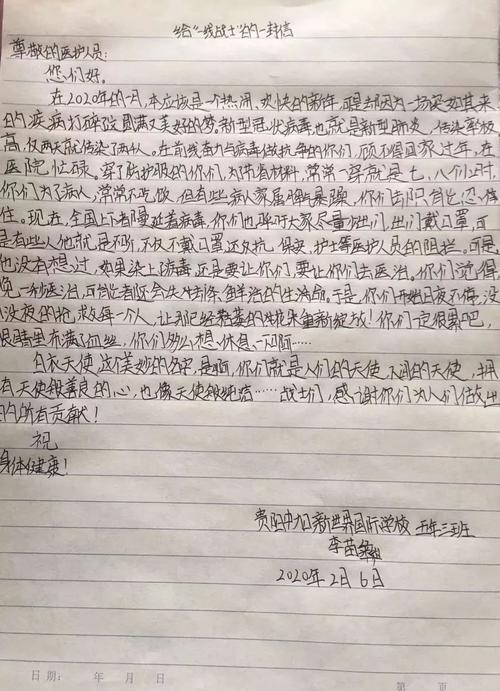 给“一线战士”的一封信
尊敬的医护人员:
您们好。
在2020年的一月,本应该是一个热闹、欢快的新年,可是却因为一场突如其来
的疾病打碎改圆满又美好的梦。新型冠状病毒也就是新型肺炎,传染率极
高,仅两天就传染了两个人。在前线奋力与病毒做抗争的你们,顾不得回家过年,在
医院忙碌。穿了防护服的你们,常常一穿就是七、八个小时,
你们为了病人,常常不吃饭,但有些病人家属脾气暴躁,你们告诉自己,忍
住。现在,全国上下都蔓延着病毒,你们也呼吁大家尽量少出门,出门戴口罩,可
是有些人他就是不听,不仅不戴口罩还反抗保安、护士等医护人员的阻拦,可是
他没有想过,如果染上病毒,还是要让你们,要让你们去医治。你们觉得
晚一秒医治,可能患者还会失去一条鲜活的生命。于是,你们开始日夜不停,没
日没夜的抢救每一个人,让那已经枯萎的花朵重新绽放!你们一定很累吧,
眼睛里布满了血丝,你们多么想休息一下啊……
白衣天使这个美妙的名字,是啊,你们就是人们的天使,人间的天使,拥
有天使般善良的心,也像天使般纯洁……战士们,感谢你们为人们做出
的所有贡献!
祝
身体健康!
贵阳中加新世界国际学校 五年三班
李苗
2020年2月6日
日期: 年 月 日
第 页